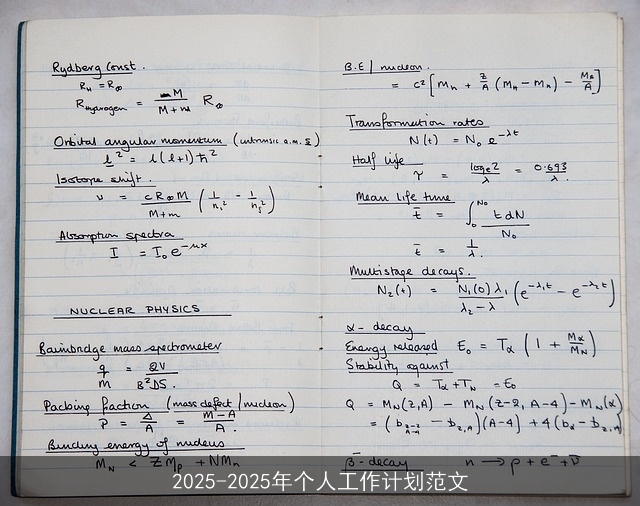 Rydberg Const.
R_H = R_∞
R_Hydrogen = M / (M + m) R_∞
Orbital angular momentum (intrinsic a.m. s)
l² = l(l+1)ħ²
Isotope shift.
ν = cR_∞M / (M+m) (1/n_i² - 1/n_j²)
Absorption spectra
I = I_0 e^{-μx}
NUCLEAR PHYSICS
Bainbridge mass spectrometer
q/m = QV / B²DS.
Packing fraction (mass defect/nucleon)
P = Δ/A = (M-A)/A.
Binding energy of nucleus
M_N < ZM_p + NM_n
B.E/nucleon.
= c² [M_n + Z/A (M_H - M_n) - M_A/A]
Transformation rates
N(t) = N_0 e^{-λt}
Half life
τ = log_e 2 / λ = 0.693 / λ.
Mean life time
t̄ = ∫_0^{N_0} t dN / N_0
t̄ = 1/λ.
Multistage decays.
N_2(t) = N_1(0) λ_1 / (λ_2 - λ_1) (e^{-λ_1t} - e^{-λ_2t})
α- decay
Energy released E_0 = T_α (1 + M_α/M_N)
Stability against
Q = T_α + T_N = E_0
Q = M_N(Z,A) - M_N(Z-2, A-4) - M_N(α)
= (b_{Z-2, A-4} - b_{Z,A})(A-4) + 4(b_α - b_{Z,A})
β⁻-decay n → p + e⁻ + ν̄
2025-2025年个人工作计划范文